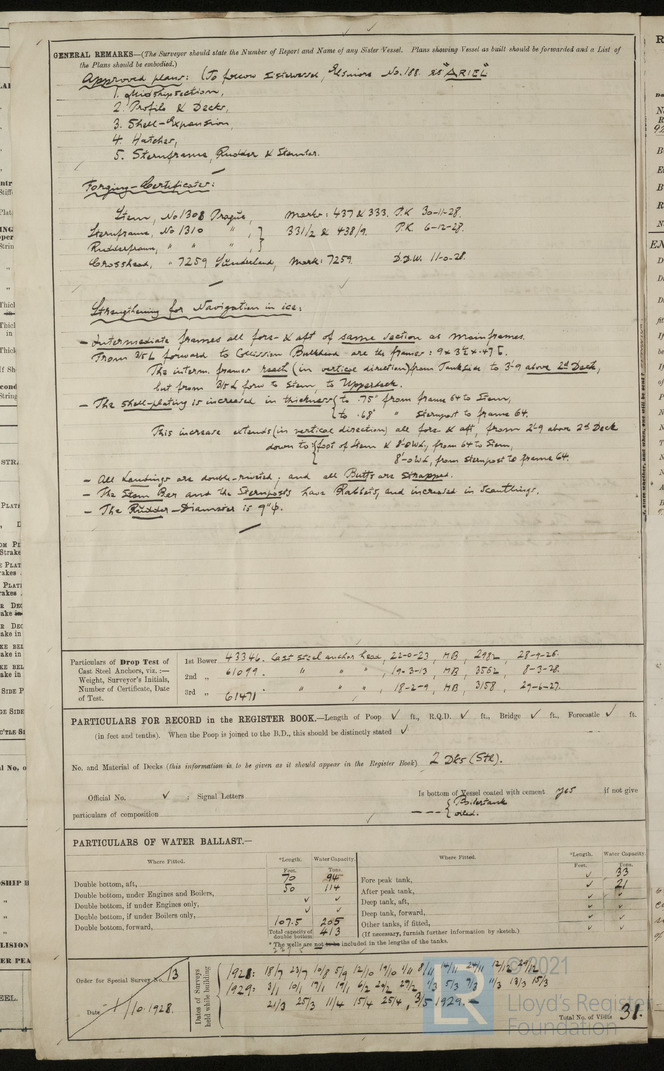 GENERAL REMARKS—(The Surveyor should state the Number of Report and Name of any Sister Vessel. Plans showing Vessel as built should be forwarded and a List of
the Plans should be embodied.)
Approved plans: (To follow Elsinore No. 188. SS "ARIEL"
1. Midship section,
2. Profile & Decks,
3. Shell-Expansion,
4. Hatches,
5. Sternframe, Rudder & Stemstr.
Forging-Certificates:
Stem, No 1308 Prague, Marks: 437 & 333. P.K 30-11-28.
Sternframe, No 1310 " , } 331/2 & 438/9. P.K 6-12-28.
Rudderframe, " " " , }
Crosshead, " 7259 Sunderland, Mark: 7259.
Strengthening for Navigation in ice:
– Intermediate frames all fore- & aft of same section as mainframes.
From 3/5 L forward to Collision Bulkhead are the frames: 9 x 3½ x .47
The interm. frames reach (in vertical direction) from Tankside to 3-9 above 2d Deck,
but from 3/5 L forw. to Stem, to Upperdeck.
– The shell-plating is increased in thickness { to .75" from frame 64 to Stem,
{ to .68" " Sternpost to frame 64.
This increase extends (in vertical direction) all fore- & aft, from 2'-9 above 2d Deck
down to { foot of Stem & from 64 to Stem,
from sternpost to frame 64.
– All Landings are double-riveted, and all Butts are strapped.
– The Stem Bar and the Sternposts have Rabbets, and increased in Scantlings.
– The Rudder-Diameter is 9"φ.
Particulars of Drop Test of
Cast Steel Anchors, viz.:—
Weight, Surveyor's Initials,
Number of Certificate, Date
of Test.
1st Bower 43346. Cast steel anchor head, 22-0-23, HB, 2982, 28-9-26.
2nd " 61099. " " " , 19-3-13, HB, 3562, 8-3-28.
3rd " 61471 " " " , 18-2-9, HB, 3158, 29-6-27.
PARTICULARS FOR RECORD in the REGISTER BOOK.—Length of Poop ✓ ft., R.Q.D. ✓ ft., Bridge ✓ ft., Forecastle ✓ ft.
(in feet and tenths). When the Poop is joined to the B.D., this should be distinctly stated ✓
No. and Material of Decks (this information is to be given as it should appear in the Register Book) 2 Dks (Stl).
Official No. ✓ ; Signal Letters Is bottom of Vessel coated with cement yes if not give
particulars of composition { Boilertank
{ oiled.
PARTICULARS OF WATER BALLAST.—
Where Fitted. *Length. Water Capacity. Where Fitted. *Length. Water Capacity.
Feet. Tons. Feet. Tons.
Double bottom, aft, 70 94 Fore peak tank, ✓ 33
Double bottom, under Engines and Boilers, 50 114 After peak tank, ✓ 21
Double bottom, if under Engines only, ✓ ✓ Deep tank, aft, ✓ ✓
Double bottom, if under Boilers only, ✓ ✓ Deep tank, forward, ✓ ✓
Double bottom, forward, 107.5 205 Other tanks, if fitted, ✓ ✓
Total capacity of double bottom 413 (If necessary, furnish further information by sketch.)
* The wells are not to be included in the lengths of the tanks.
Order for Special Survey No. 13
Date 1/10. 1928.
Dates of Surveys held while building
1928: 18/7 23/7 10/8 5/9 12/10 19/10
1929: 3/1 10/1 17/1 19/1
21/3 25/3 11/4 15/4 25/4, 3/5 1929. –
Total No. of Visits 31.
© 2021
Lloyd's Register
Foundation